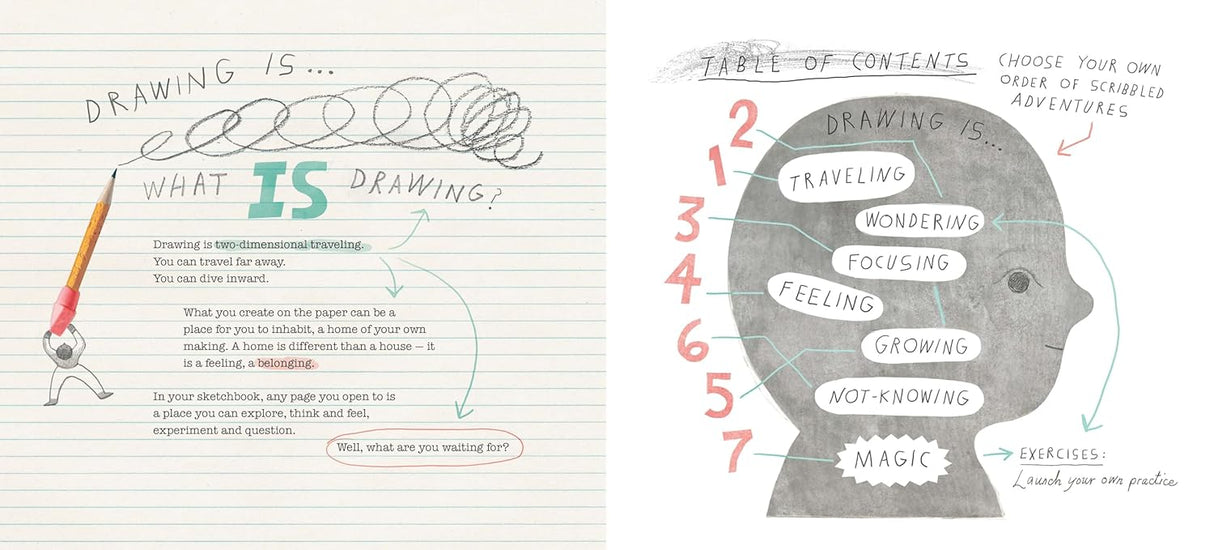 DRAWING IS...
WHAT IS DRAWING?
Drawing is two-dimensional traveling.
You can travel far away.
You can dive inward.
What you create on the paper can be a
place for you to inhabit, a home of your own
making. A home is different than a house — it
is a feeling, a belonging.
In your sketchbook, any page you open to is
a place you can explore, think and feel,
experiment and question.
Well, what are you waiting for?
TABLE OF CONTENTS
CHOOSE YOUR OWN
ORDER OF SCRIBBLED
ADVENTURES
DRAWING IS...
2
1 TRAVELING
WONDERING
3 FOCUSING
4 FEELING
6 GROWING
5 NOT-KNOWING
7 MAGIC
EXERCISES:
Launch your own practice